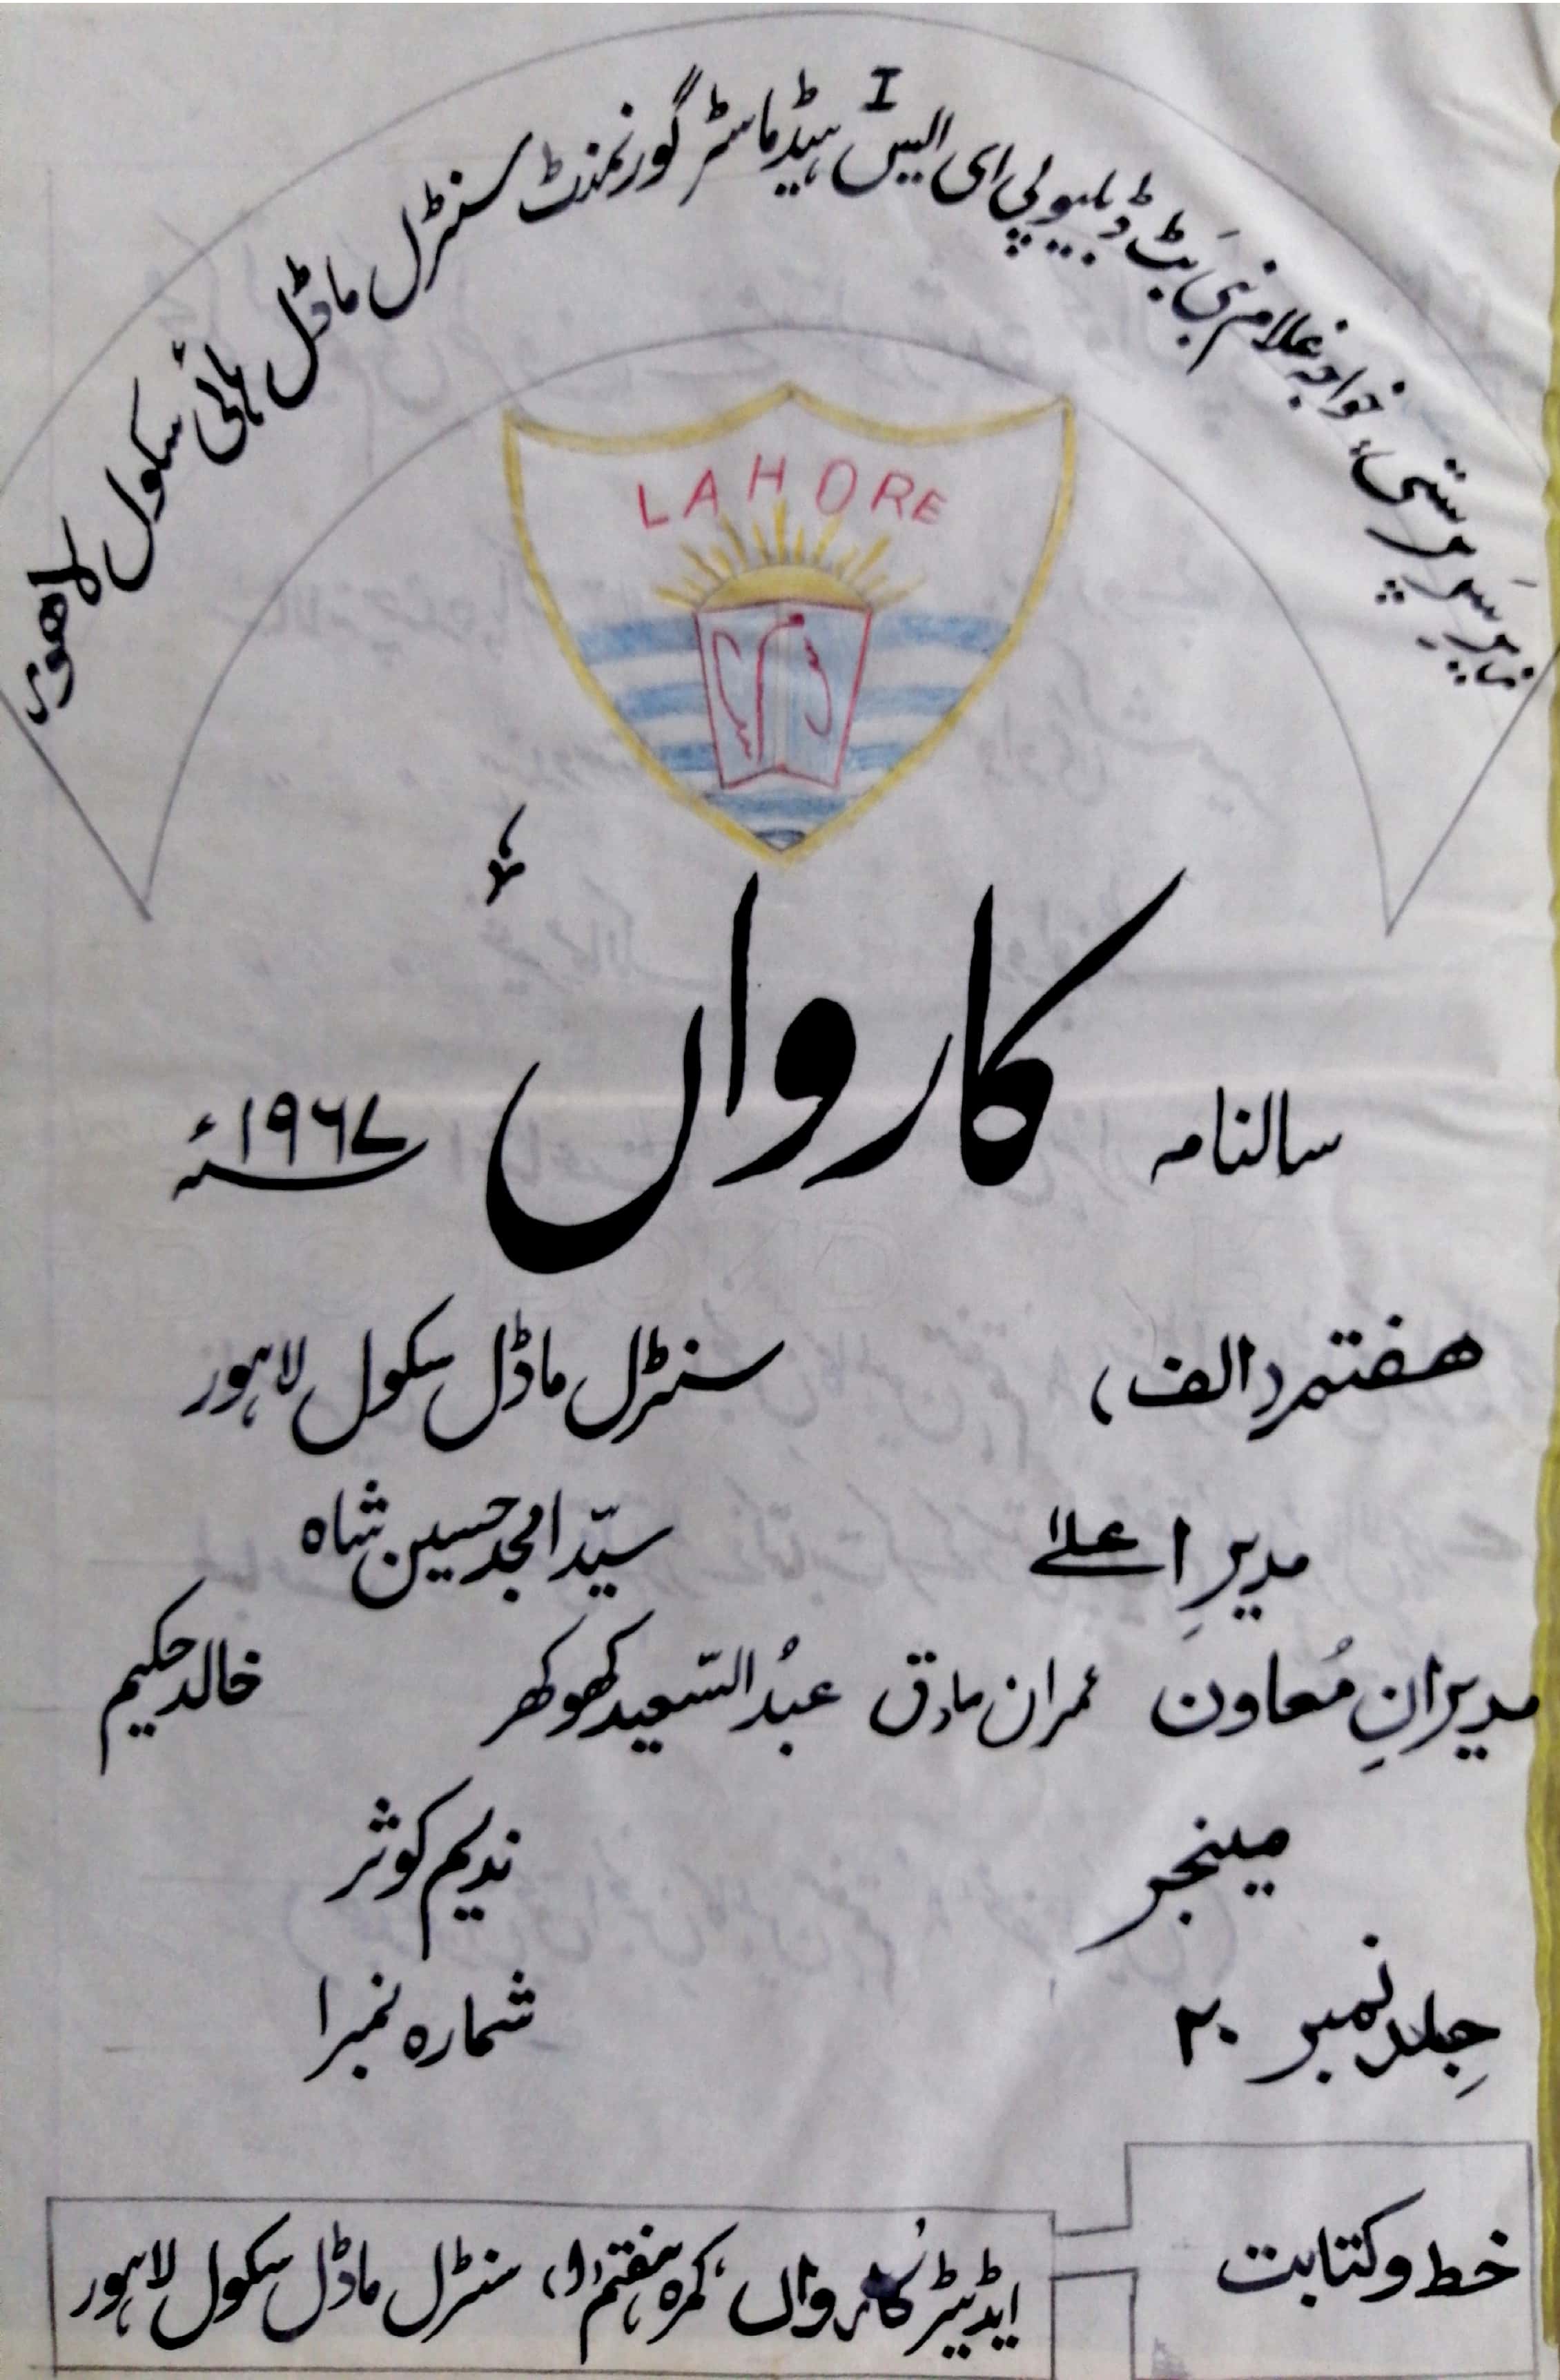 زیرِ سرپرستی، خواجہ غلام نبی بٹ ڈبلیو پی ای ایس I ہیڈماسٹر گورنمنٹ سنٹرل ماڈل ہائی سکول لاھور
LAHORE
سالنامہ "کارواں" ۱۹۶۷ء
ھفتم (الف) سنٹرل ماڈل سکول لاہور
مدیرِ اعلےٰ سیّد امجد حسین شاہ
مدیرانِ مُعاون عمران صادق عبدُالسّعید کھوکھر خالد حکیم
مینجر ندیم کوثر
جِلد نمبر ۲۰ شمارہ نمبر ۱
خط و کتابت
ایڈیٹر کارواں، کمرہ ہفتم (ا)، سنٹرل ماڈل سکول لاہور